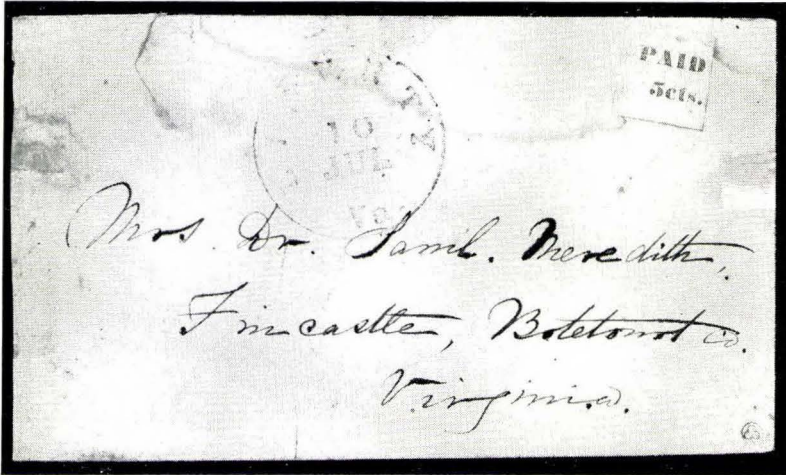 PAID
5cts.
10
JUL
Mrs. Dr. Saml. Meredith,
Fincastle, Botetourt co.
Virginia.